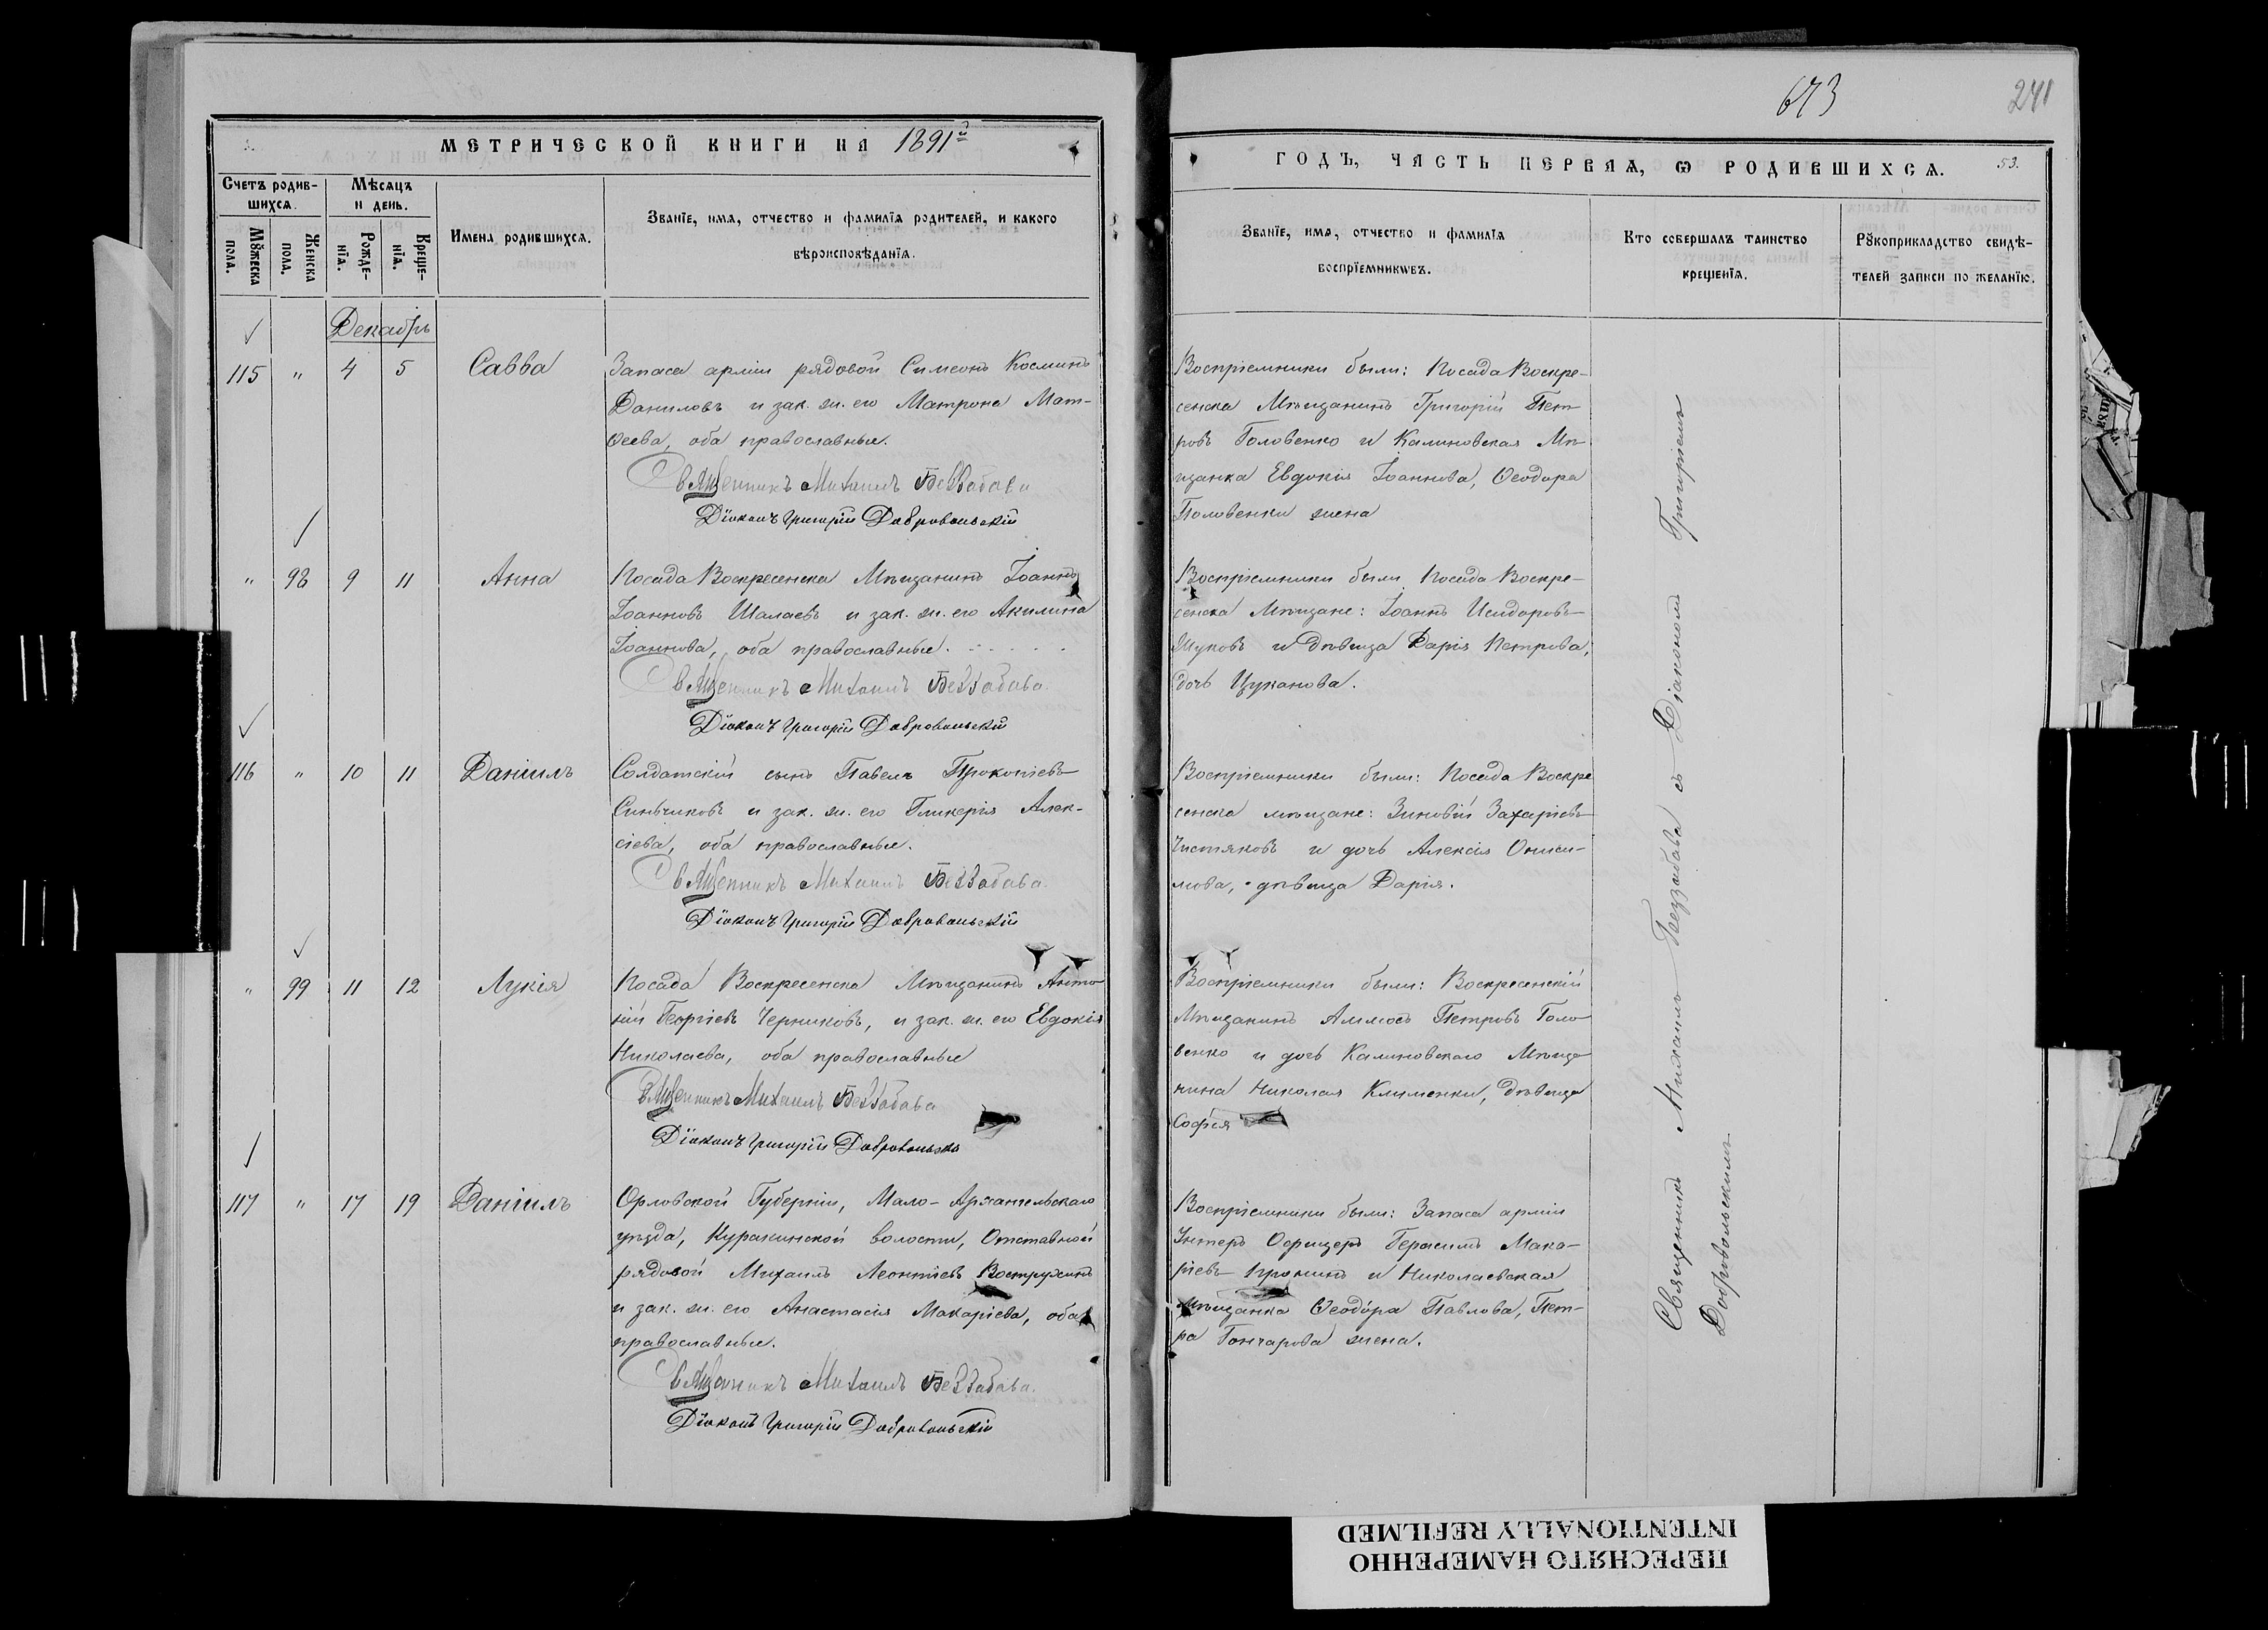 673
241
МЕТРИЧЕСКОЙ КНИГИ НА 1891й
ГОДЪ, ЧАСТЬ ПЕРВАЯ, Ѡ РОДИВШИХСѦ.
53.
Счетъ родив-
шихсѧ.
Мѣсѧцъ
и день.
Мꙋжеска
пола.
Женска
пола.
Рожде-
нїѧ.
Креще-
нїѧ.
Имена родившихсѧ.
Званїе, имѧ, отчество и фамилїѧ родителей, и какого
вѣроисповѣданїѧ.
Званїе, имѧ, отчество и фамилїѧ
воспрїемникѡвъ.
Кто совершалъ таинство
крещенїѧ.
Рꙋкоприкладство свидѣ-
телей записи по желанїю.
Декабрь
115 " 4 5 Савва
Запаса арміи рядовой Симеонъ Косминъ
Даниловъ и зак. ж. его Матрона Мат-
ѳеева, оба православные.
Священникъ Михаилъ Беззабава
Діаконъ Григорій Добровольскій
Воспріемники были: Посада Воскре-
сенска Мѣщанинъ Григорій Пет-
ровъ Головенко и Калиновская Мѣ-
щанка Евдокія Іоаннова, Ѳеодора
Половенки жена
" 98 9 11 Анна
Посада Воскресенска Мѣщанинъ Іоаннъ
Іоанновъ Шалаевъ и зак. ж. его Акилина
Іоаннова, оба православные.
Священникъ Михаилъ Беззабава
Діаконъ Григорій Добровольскій
Воспріемники были Посада Воскре-
сенска Мѣщане: Іоаннъ Исидоровъ
Жуковъ и дѣвица Дарія Петрова,
дочь Цуканова.
116 " 10 11 Даніилъ
Солдатскій сынъ Павелъ Прокопіевъ
Синьчиковъ и зак. ж. его Гликерія Алек-
сіева, оба православные.
Священникъ Михаилъ Беззабава
Діаконъ Григорій Добровольскій
Воспріемники были: Посада Воскре
сенска мѣщане: Зиновій Захаріевъ
Чистяковъ и дочь Алексія Ониси-
мова, дѣвица Дарія.
" 99 11 12 Лукія
Посада Воскресенска Мѣщанинъ Анто
ній Георгіевъ Черниковъ, и зак. ж. его Евдокія
Николаева, оба православные
Священникъ Михаилъ Беззабава
Діаконъ Григорій Добровольскій
Воспріемники были: Воскресенскій
Мѣщанинъ Аммосъ Петровъ Голо
венко и дочь Калиновскаго Мѣща
нина Николая Клименки, дѣвица
Софія
117 " 17 19 Даніилъ
Орловской Губерніи, Мало-Архангельскаго
уѣзда, Куракинской волости, Отставной
рядовой Михаилъ Леонтіевъ Вострухинъ
и зак. ж. его Анастасія Макаріева, оба
православные.
Священникъ Михаилъ Беззабава.
Діаконъ Григорій Добровольскій
Воспріемники были: Запаса арміи
Унтеръ Офицеръ Герасимъ Мака-
ріевъ Пронинъ и Николаевская
мѣщанка Ѳеодора Павлова, Пет-
ра Гончарова жена.
Священникъ Михаилъ Беззабава съ Діакономъ Григоріемъ
Добровольскимъ
ПЕРЕСНЯТО НАМЕРЕННО
INTENTIONALLY REFILMED